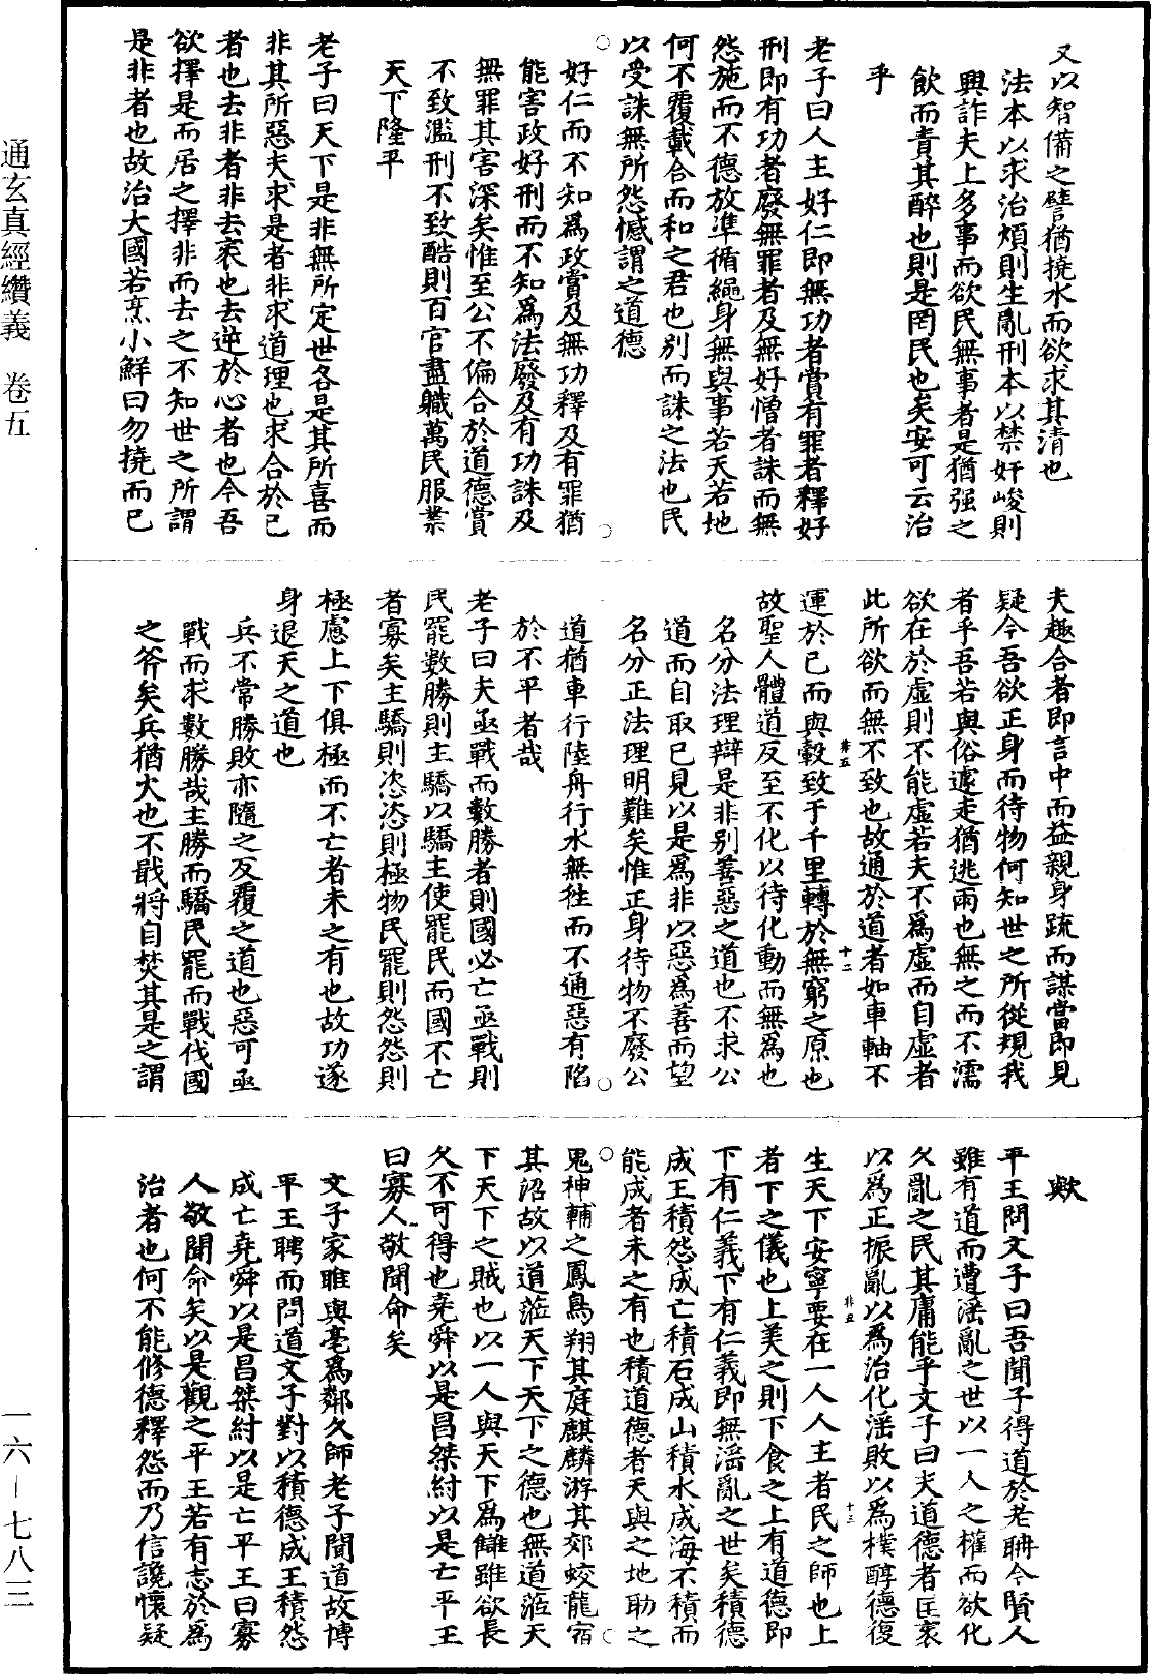 又以智備之譬猶撓水而欲求其清也
法本以求治煩則生亂刑本以禁奸峻則
興詐夫上多事而欲民無事者是猶强之
飲而責其醉也則是罔民也矣安可云治
乎
老子曰人主好仁即無功者賞有罪者釋好
刑即有功者廢無罪者及無好憎者誅而無
怨施而不德放準循繩身無與事若天若地
何不覆載合而和之君也別而誅之法也民
以受誅無所怨憾謂之道德
好仁而不知爲政賞及無功釋及有罪猶
能害政好刑而不知爲法廢及有功誅及
無罪其害深矣惟至公不偏合於道德賞
不致濫刑不致酷則百官盡職萬民服業
天下隆平
老子曰天下是非無所定世各是其所喜而
非其所惡夫求是者非求道理也求合於己
者也去非者非去衺也去逆於心者也今吾
欲擇是而居之擇非而去之不知世之所謂
是非者也故治大國若烹小鮮曰勿撓而已
夫趣合者即言中而益親身疏而謀當即見
疑今吾欲正身而待物何知世之所從規我
者乎吾若與俗遽走猶逃雨也無之而不濡
欲在於虛則不能虛若夫不爲虛而自虛者
此所欲而無不致也故通於道者如車軸不
運於己而與轂致于千里轉於無窮之原也
故聖人體道反至不化以待化動而無爲也
名分法理辯是非別善惡之道也不求公
道而自取己見以是爲非以惡爲善而望
名分正法理明難矣惟正身待物不廢公
道猶車行陸舟行水無往而不通惡有陷
於不平者哉
老子曰夫亟戰而數勝者則國必亡亟戰則
民罷數勝則主驕以驕主使罷民而國不亡
者寡矣主驕則恣恣則極物民罷則怨怨則
極慮上下俱極而不亡者未之有也故功遂
身退天之道也
兵不常勝敗亦隨之反覆之道也惡可亟
戰而求數勝哉主勝而驕民罷而戰伐國
之斧矣兵猶火也不戢將自焚其是之謂
歟
平王問文子曰吾聞子得道於老聃今賢人
雖有道而遭淫亂之世以一人之權而欲化
久亂之民其庸能乎文子曰夫道德者匡衺
以爲正振亂以爲治化淫敗以爲樸醇德復
生天下安寧要在一人人主者民之師也上
者下之儀也上美之則下食之上有道德即
下有仁義下有仁義即無淫亂之世矣積德
成王積怨成亡積石成山積水成海不積而
能成者未之有也積道德者天與之地助之
鬼神輔之鳳鳥翔其庭麒麟游其郊蛟龍宿
其沼故以道蒞天下天下之德也無道蒞天
下天下之賊也以一人與天下爲讎雖欲長
久不可得也堯舜以是昌桀紂以是亡平王
曰寡人敬聞命矣
文子家睢與亳爲鄰久師老子聞道故博
平王聘而問道文子對以積德成王積怨
成亡堯舜以是昌桀紂以是亡平王曰寡
人敬聞命矣以是觀之平王若有志於爲
治者也何不能修德釋怨而乃信讒懷疑
通玄真經纘義　卷五
一六—七八三